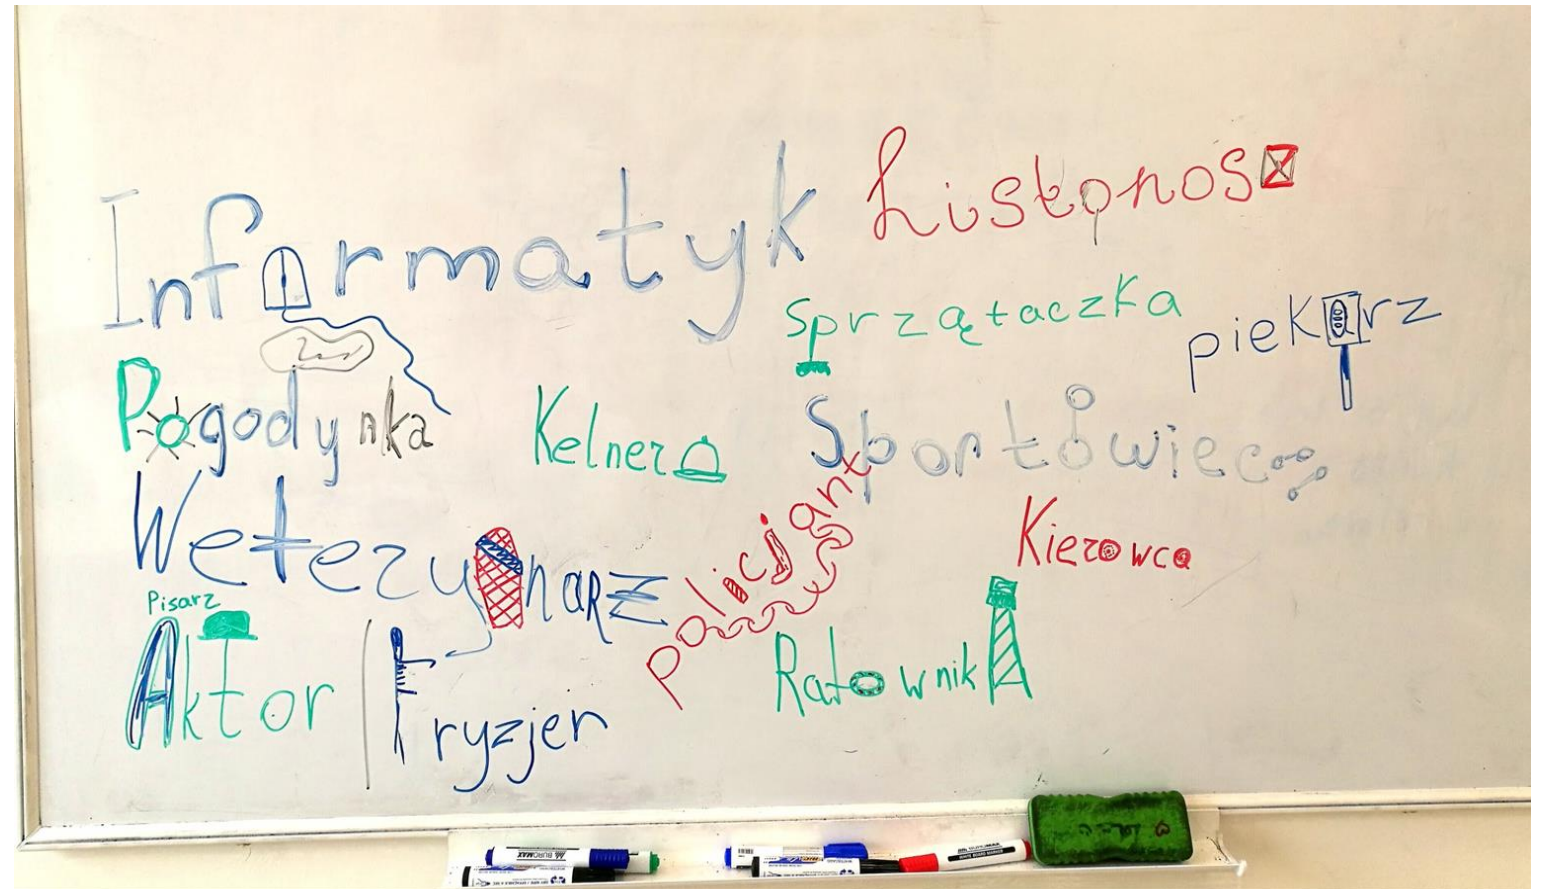 Informatyk
Listonosz
Sprzątaczka
piekarz
Pogodynka
Kelner
Sportowiec
Weterynarz
policjant
Kierowca
Pisarz
Aktor
Fryzjer
Ratownik
BUROMAX